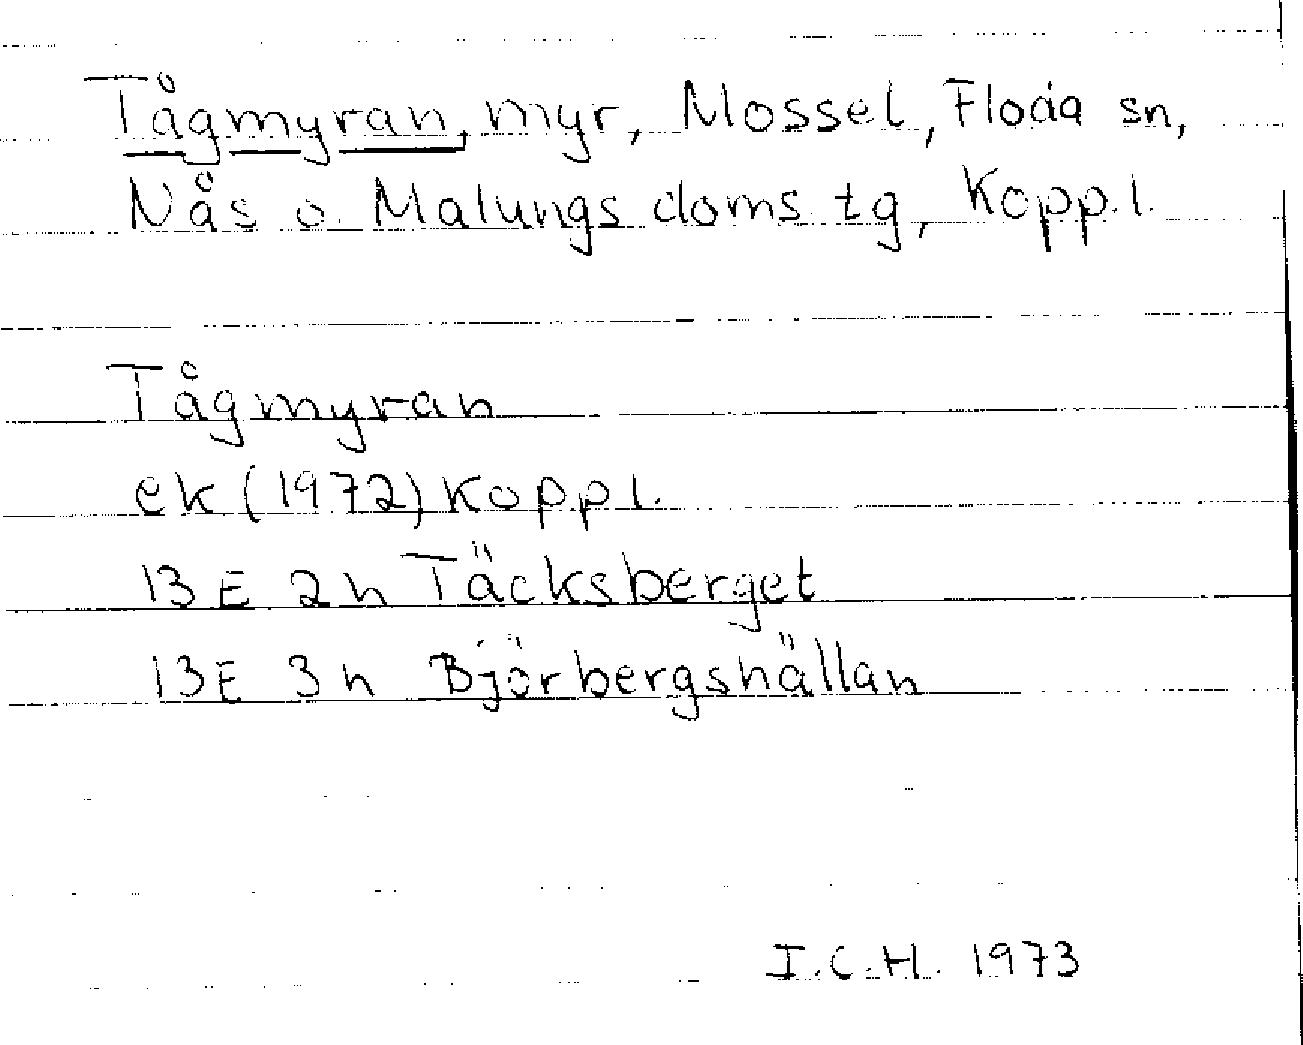 Tågmyran, myr, Mossel, Floda sn,
Nås o. Malungs doms tg, Kopp.l.
Tågmyran
ek (1972) Kopp l.
13 E 2 h Täcksberget
13 E 3 h Björbergshällan
I.C.H. 1973